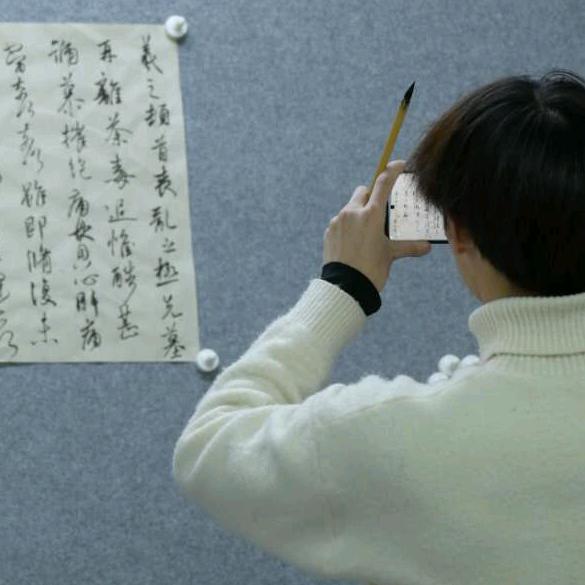 羲之頓首喪亂之極先墓
再離荼毒追惟酷甚
號慕摧絕痛貫心肝痛
當奈何奈何雖即脩復未